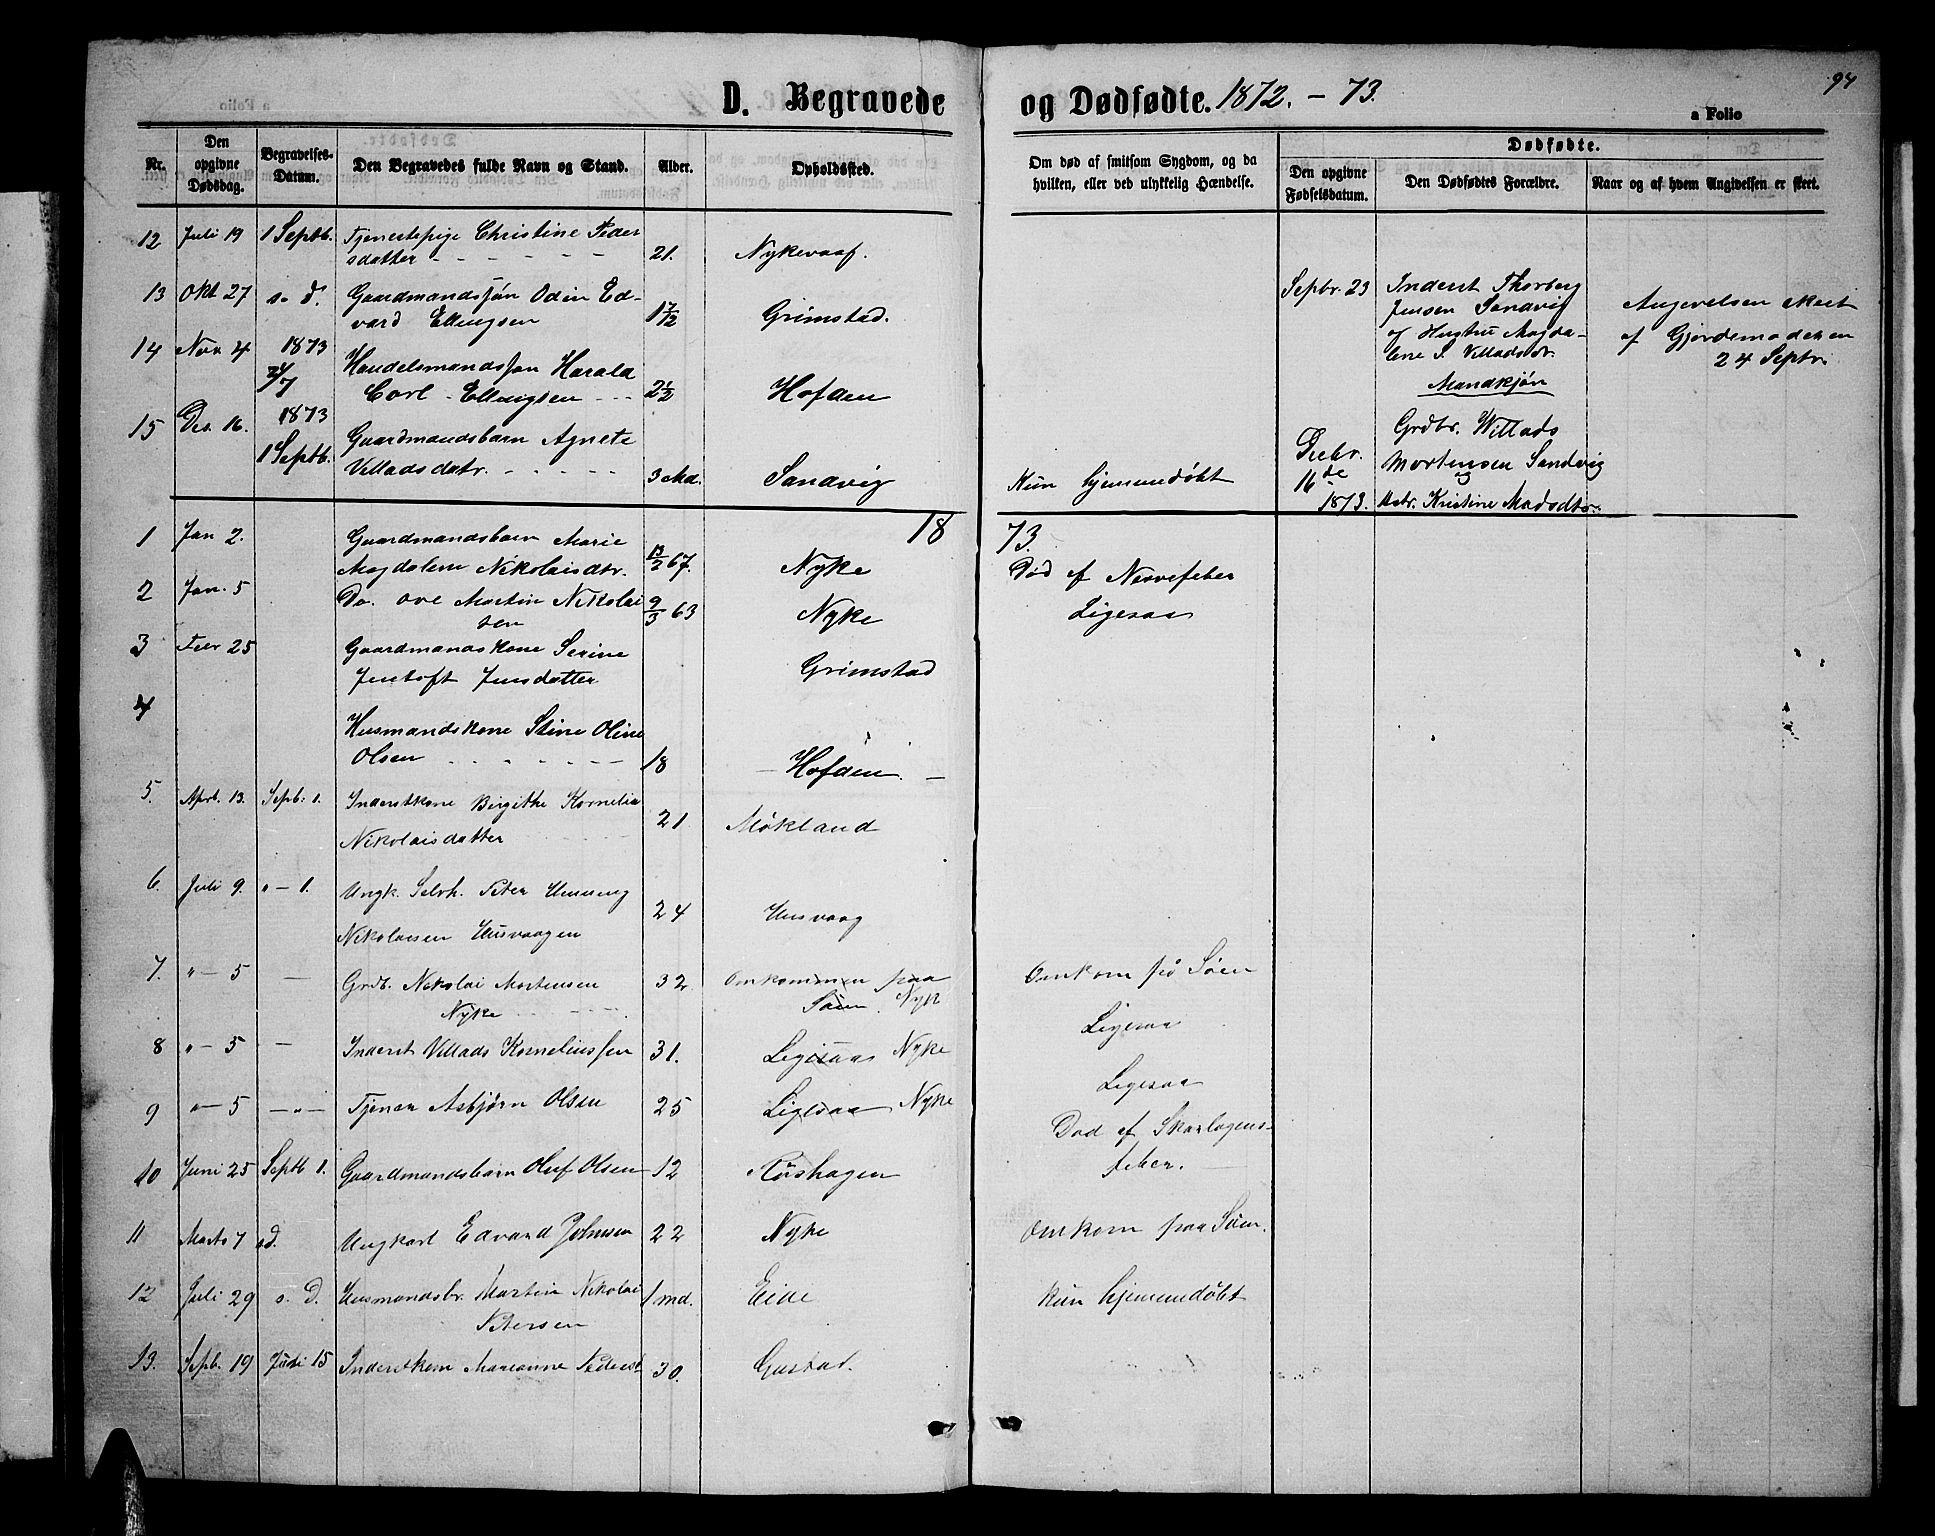 94
D. Begravede og Dødfødte. 1872. – 73.
a Folio
Nr.
Den opgivne Dødsdag.
Begravelses-Datum.
Den Begravedes fulde Navn og Stand.
Alder.
Opholdssted.
Om død af smitsom Sygdom, og da hvilken, eller ved ulykkelig Hændelse.
Dødfødte.
Den opgivne Fødselsdatum.
Den Dødfødtes Forældre.
Naar og af hvem Angivelsen er skeet.
12 Juli 19 1 Septb. Tjenestepige Christine Peder
sdatter - - - - - - 21. Nykevaag.
13 Okt 27 s. d. Gaardmandssøn Odin Ed-
vard Ellingsen 1 7/12 Grimstad.
14 Nov 4 1873
24/7 Handelsmandssøn Harald
Carl Ellingsen - - 2 1/2 Hofden
15 Des. 16. 1873
1 Septb. Gaardmandsbarn Agnete
Villadsdatr. - - - - - 3 Md. Sandvig Kun hjemmedøbt
Septbr. 23 Inderst Thorberg
Jensen Sandvig
og Hustru Magda-
lene S. Villadsdr.
Mandkjøn
Angivelsen skeet
af Gjordemoderen
24 Septr.
Decbr.
16de
1873.
Grdbr. Willads
Mortensen Sandvig
og
Hstr. Kristine Madsdtr.
1873.
1 Jan 2. Gaardmandsbarn Marie
Magdalene Nikolaisdtr. 13/2 67. Nyke Død af Nervefeber
2 Jan. 5 Do. Ove Martin Nikolai
sen 9/3 63 Nyke Ligesaa
3 Febr 25 Gaardmandskone Serine
Jentoft Jensdatter Grimstad
4
Husmandskone Stine Oline
Olsen - - - - - - 18 – Hofden. –
5. Aprl. 13. Septb: 1. Inderstkone Birgithe Kornelia
Nikolaisdatter 21. Møkland
6. Juli 9. " – 1. Ungk. Selvh. Peter Henning
Nikolaisen Husvaagen 24 Husvaag
7. " – 5 – Grdb. Nikolai Mortensen
Nyke - - - - 32 Omkommen paa
Søen. Nyk Omkom på Søen
8 " – 5 – Inderst Villads Korneliussen 31. Ligesaa Nyke Ligesaa
9 " – 5 – " – Tjener Asbjørn Olsen 25 Ligesaa Nyke Ligesaa
10 Juni 25 Septb 1. Gaardmandsbarn Oluf Olsen 12 Rishagen Død af Skarlagens-
feber.
11 Marts 7 s.d. Ungkarl Edvard Johnsen 22 Nyke Omkom paa Søen.
12 Juli 29 s. D. Husmandsbr. Martin Nikolai
Petersen 1 md. Eide Kun hjemmedøbt
13. Septb. 19 Juli 15 Inderstkom Marianne Pederst 30. Gustad.